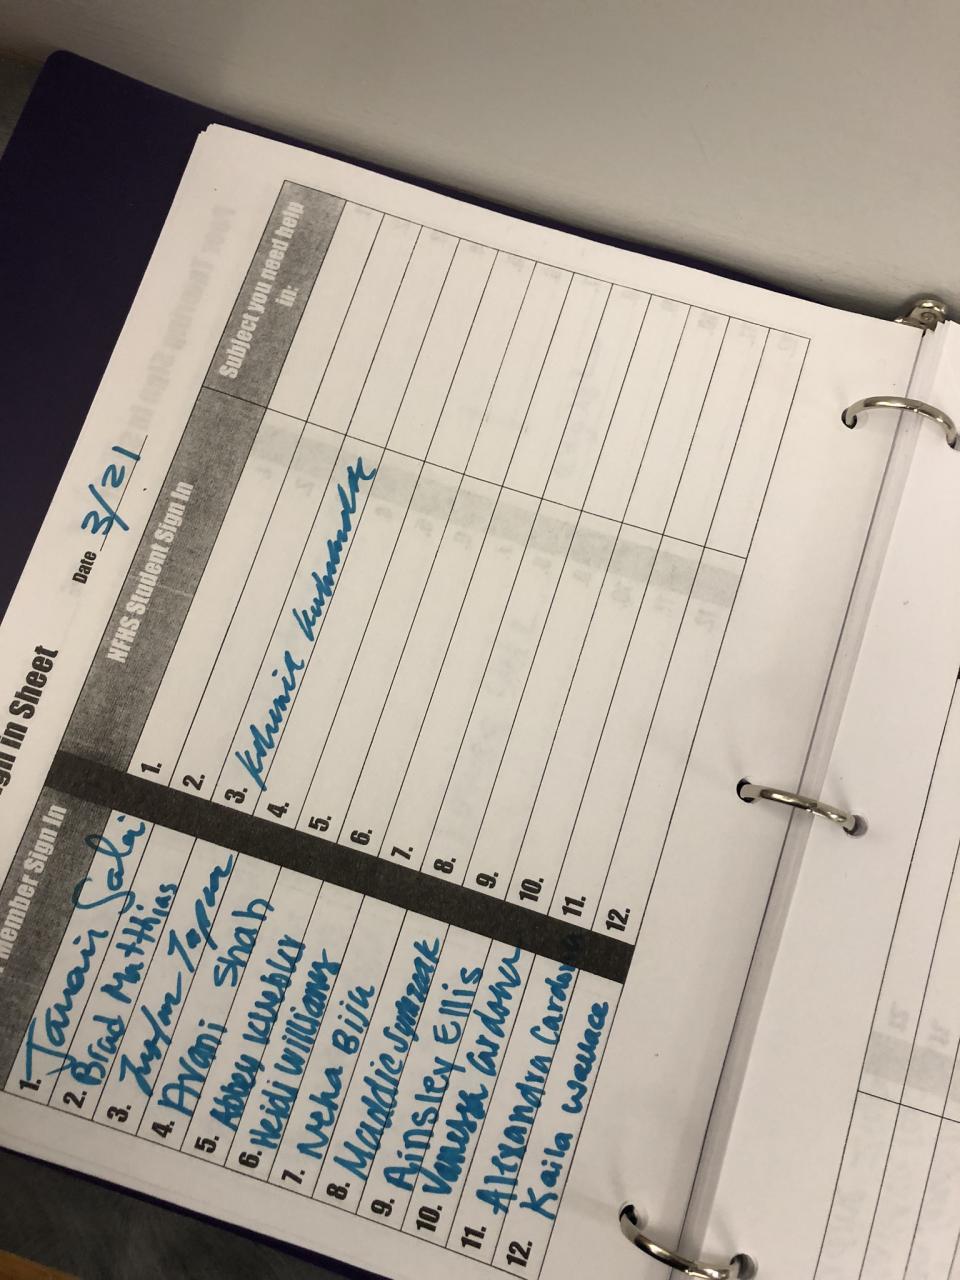 Sign in Sheet
Date 3/21
Member Sign In
NHS Student Sign In
Subject you need help in:
1. Jamair
2. Brad Matthias
3.
4. Avani Shah
5. Abbey Kuebler
6. Heidi Williams
7. Neha Biju
8. Maddie
9. Ainsley Ellis
10. Vanessa Cardona
11. Alexandra Cardona
12. Kaila Wallace
1.
2.
3.
4.
5.
6.
7.
8.
9.
10.
11.
12.